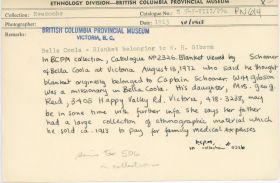 ETHNOLOGY DIVISION—BRITISH COLUMBIA PROVINCIAL MUSEUM
Photographer: 1913
BRITISH COLUMBIA PROVINCIAL MUSEUM
VICTORIA, B. C.
PN 614
Bella Coola - Blanket belonging to
In BCPM collection, Catalogue No 2326. Blanket viewed by Schooner
of Bella Coola at Victoria August 18, 1972 who said he thought
blanket originally belonged to Captain Schooner. WH Gibson
was a missionary in Bella Coola. His daughter, Mrs. Georg
Reid, 3403 Happy Valley Rd. Victoria, 478-3238, may
be in some time with further info. She says her father
had a large collection of ethnographic material which
he sold ca. 1913 to pay for family medical expenses
in collection